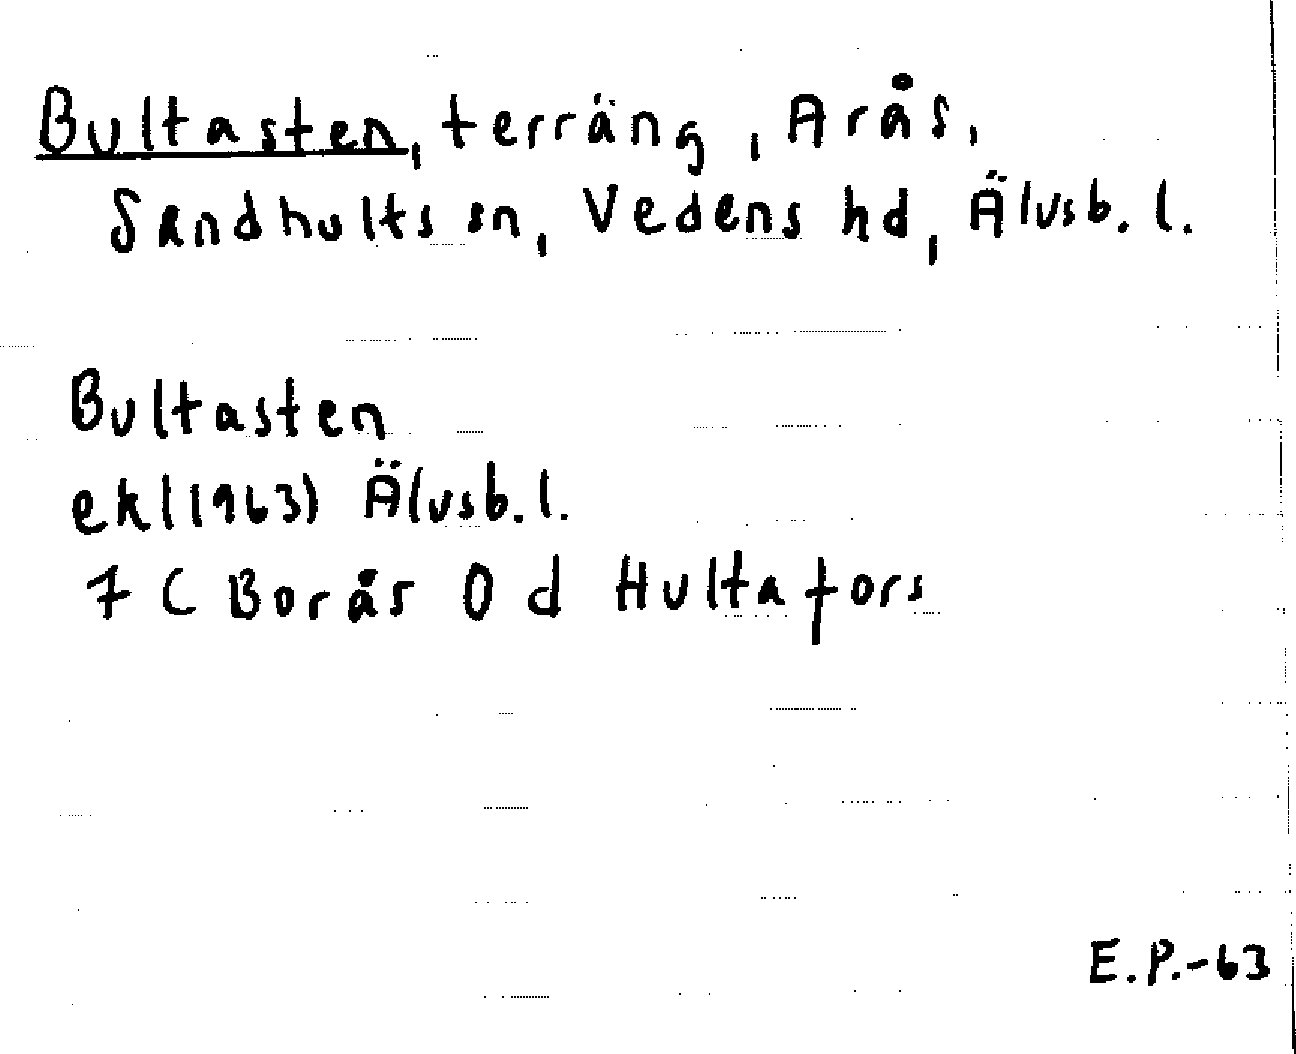 Bultasten, terräng, Arås,
Sandhults sn, Vedens hd, Älvsb. l.
Bultasten
ekl(1963) Älvsb. l.
7 C Borås 0 d Hultafors
E.P.-63